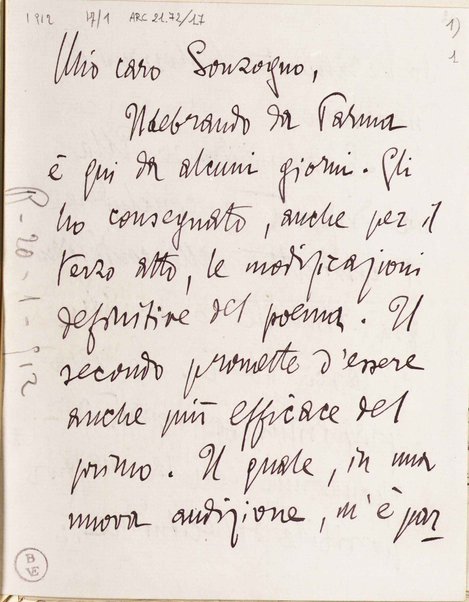 1912 17/1 ARC 21.72/17
1)
1
Mio caro Sonzogno,
Ildebrando da Parma
è qui da alcuni giorni. Gli
ho consegnato, anche per il
terzo atto, le modificazioni
definitive del poema. Il
secondo promette d'essere
anche più efficace del
primo. Il quale, in una
nuova audizione, m'è par
R - 20 - 1 - 912
B
VE